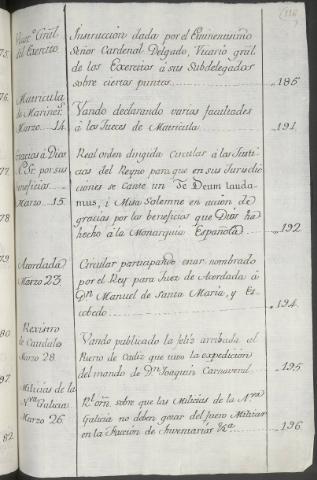 116
75.
Vicar.º Gräl
del Exercito
Instruccion dada por el Eminentisimo
Señor Cardenal Delgado, Vicario gräl
de los Exercitos á sus Subdelegados
sobre ciertos puntos 185
76.
Matricula
de Mariner.s
Marzo 14.
Vando declarando varias facultades
á los Jueces de Matricula 191
77.
Gracias á Dios
N. Sr. por sus
beneficios
Marzo 15.
Real orden dirigida Circular á las Justi
cias del Reyno para que en sus Jurisdic
ciones se Cante un Te Deum lauda
mus, i Misa Solemne en accion de
gracias por los beneficios que Dios ha
hecho á la Monarquia Española 192
78
79
Acordada
Marzo 23.
Circular participando estar nombrado
por el Rey para Juez de Acordada á
Dn Manuel de Santa Maria, y Es-
cobedo 194.
80
Registro
de Caudales
Marzo 28.
Vando publicado la feliz arribada al
Puerto de Cadiz que tuvo la expedicion
del mando de Dn Joaquin Cannaveral 195
97
Milicias de la
Nva Galicia
Marzo 26.
Rl. orñ. sobre que las Milicias de la Nva
Galicia no deben gozar del fuero Militar
en la Faccion de Inventarios &a 196
82.